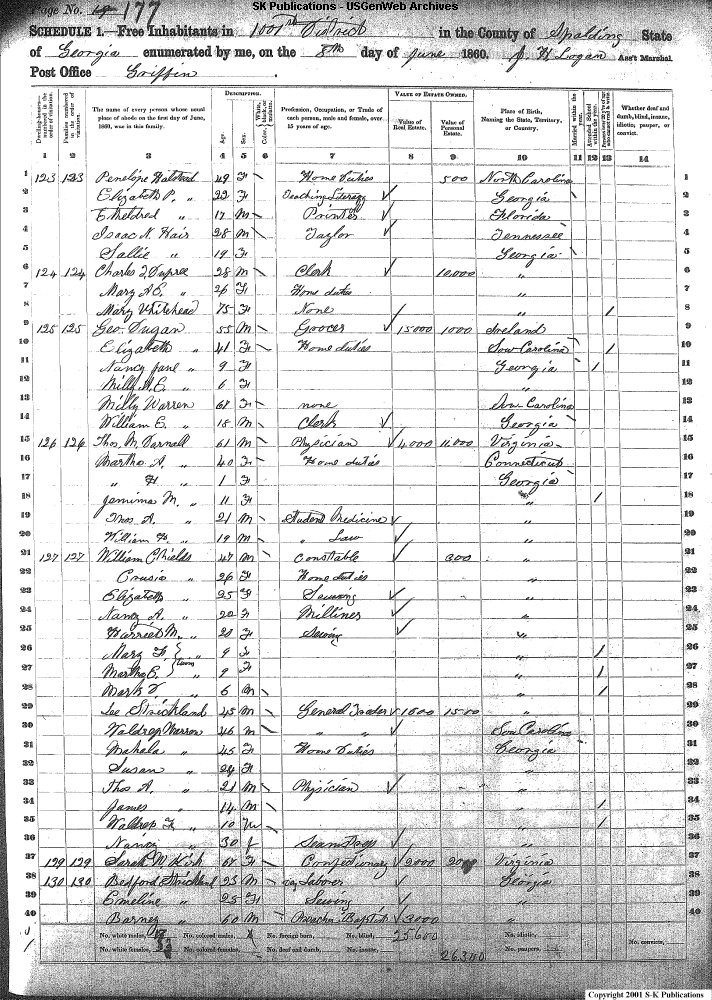 SK Publications - USGenWeb Archives
Page No. 177
SCHEDULE 1.—Free Inhabitants in 1001st District in the County of Spalding State
of Georgia enumerated by me, on the 8th day of June 1860. J. H. Logan Ass't Marshal.
Post Office Griffin
Dwelling-houses—numbered in the order of visitation.
Families numbered in the order of visitation.
The name of every person whose usual place of abode on the first day of June, 1860, was in this family.
DESCRIPTION.
Age.
Sex.
Color, White, black, or mulatto.
Profession, Occupation, or Trade of each person, male and female, over 15 years of age.
VALUE OF ESTATE OWNED.
Value of Real Estate.
Value of Personal Estate.
Place of Birth, Naming the State, Territory, or Country.
Married within the year.
Attended School within the year.
Whether deaf and dumb, blind, insane, idiotic, pauper, or convict.
1 2 3 4 5 6 7 8 9 10 11 12 13 14
1 123 123 Penelope Halstead 49 F Home duties 500 North Carolina 1
2 Elizabeth P. " 22 F Teaching Georgia 2
3 Etheldred " 17 M Printer Florida 3
4 Isaac N. Hair 28 M Taylor Tennessee 4
5 Sallie " 19 F Georgia 5
6 124 124 Charles Dupree 28 M Clerk 10,000 " 6
7 Mary A E. " 26 F Home duties " 7
8 Mary Whitehead 75 F None " / 8
9 125 125 Geo. Dugan 55 M Goocer 15000 1000 Ireland 9
10 Elizabeth " 41 F Home duties Sow Carolina / 10
11 Nancy Jane " 9 F Georgia / 11
12 Milly A. E. " 6 F " 12
13 Milly Warren 67 F none Sow Carolina 13
14 William E. " 18 M Clerk Georgia 14
15 126 126 Thos. M. Darnall 61 M Physician 4,000 11,000 Virginia 15
16 Martha A. " 40 F Home duties Connecticut 16
17 " H " 1 F Georgia 17
18 Jemima M. " 11 F " / 18
19 Thos. A. " 21 M Student Medicine " 19
20 William H. " 19 M " Law " 20
21 127 127 William C Shields 47 M Constable 300 " 21
22 Crusia " 26 F Home duties " 22
23 Elizabeth " 25 F Sewing " 23
24 Nancy A. " 22 F Milliner " 24
25 Harriet M. " 20 F Sewing " 25
26 Mary F " 9 F " / 26
27 Martha E. twins " 9 F " / 27
28 Mark V. " 6 M " / 28
29 Lee Strickland 45 M General Trader 1600 1500 " 29
30 Waldrep Warren 46 M " " Sow Carolina 30
31 Mahala " 45 F Home Duties Georgia 31
32 Susan " 24 F " 32
33 Thos A. " 21 M Physician " 33
34 James " 14 M " / 34
35 Waldrep F " 10 M " / 35
36 Nancy " 30 f Seamstress " 36
37 129 129 Sarah M. Kirk 67 F Confectionary 2000 Virginia 37
38 130 130 Bedford Strickland 25 M Day Laborer Georgia 38
39 Emeline " 25 F Sewing " 39
40 Barney " 60 M Preacher Baptist 3000 " 40
No. white males, No. colored males, No. foreign born, No. blind, 25600 No. idiotic,
No. white females, No. colored females, No. deaf and dumb, No. insane, 26300 No. paupers, No. convicts,
Copyright 2001 S-K Publications